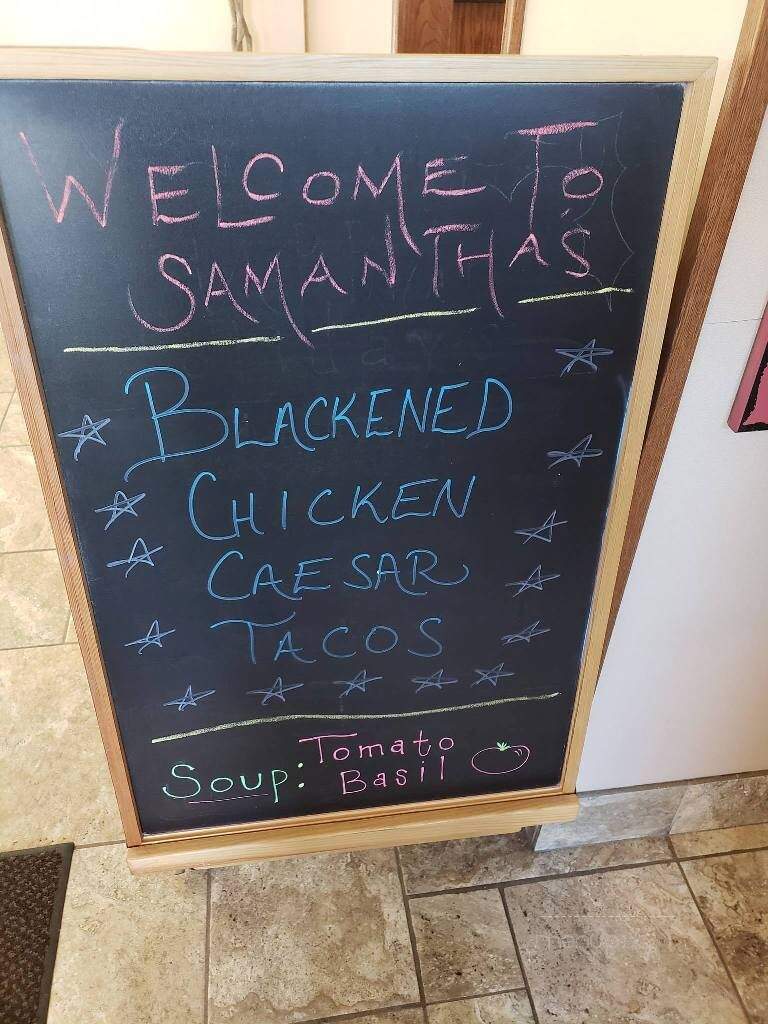 WELCOME TO
SAMANTHAS
BLACKENED
CHICKEN
CAESAR
TACOS
Soup: Tomato
Basil